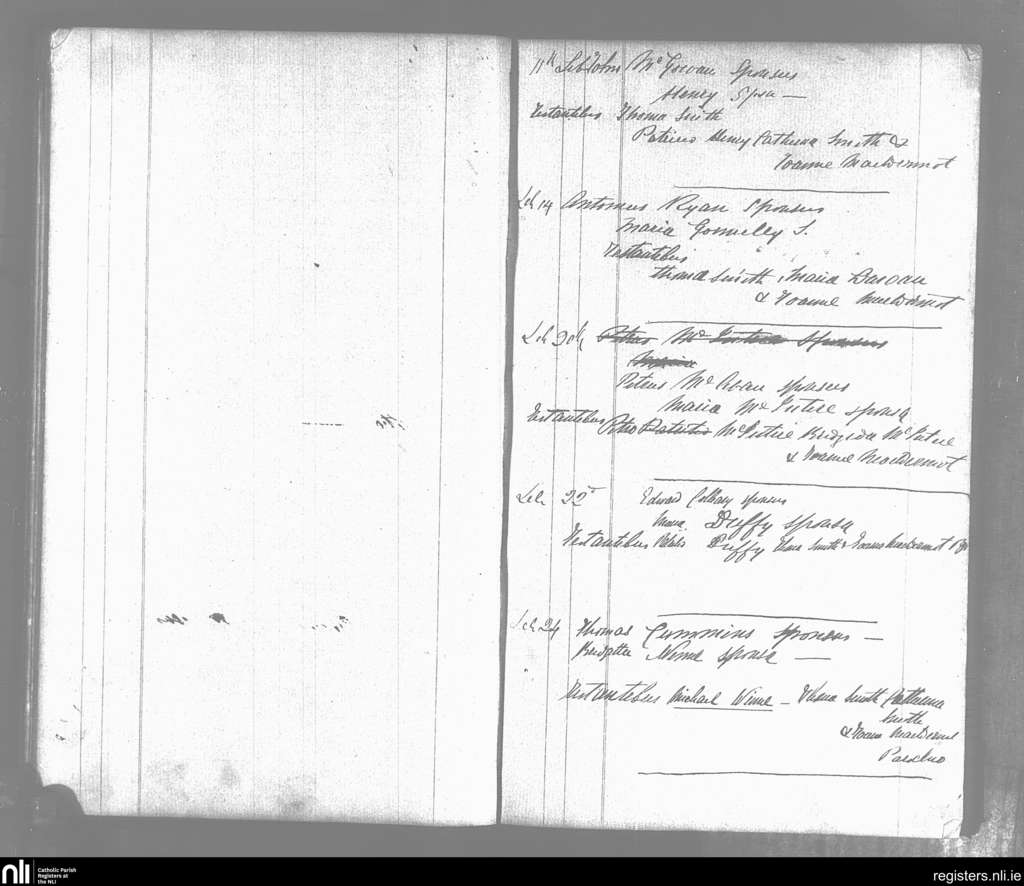 11th Feb John McGowan Sponsus
Henry Spsa —
Testantibus Thoma Smith
Patricio Henry Catherina Smith &
Joanne MacDermot
Feb 14 Antonius Ryan Sponsus
Maria Connelly S.
Testantibus
Thoma Smith, Maria
& Joanne MacDermot
Feb 20th Petrus Mc Sponsus
Maria
Peterus Mc Gowan sponsus
Maria Mc Intire sponsa
Testantibus Petro Patritio McIntire Bridgida McIntire
& Joanne MacDermot
Feb 22d Edward sponsus
Duffy sponsa
Testantibus Duffy Thoma Smith & Joanne MacDermot
Feb 24 Thomas Cummins Sponsus —
Bridgetta sponsa —
Testantibus Michael Winne — Thoma Smith Catherina
Smith
& Joanne MacDermot
Parocho
nli Catholic Parish
Registers at
the NLI
registers.nli.ie